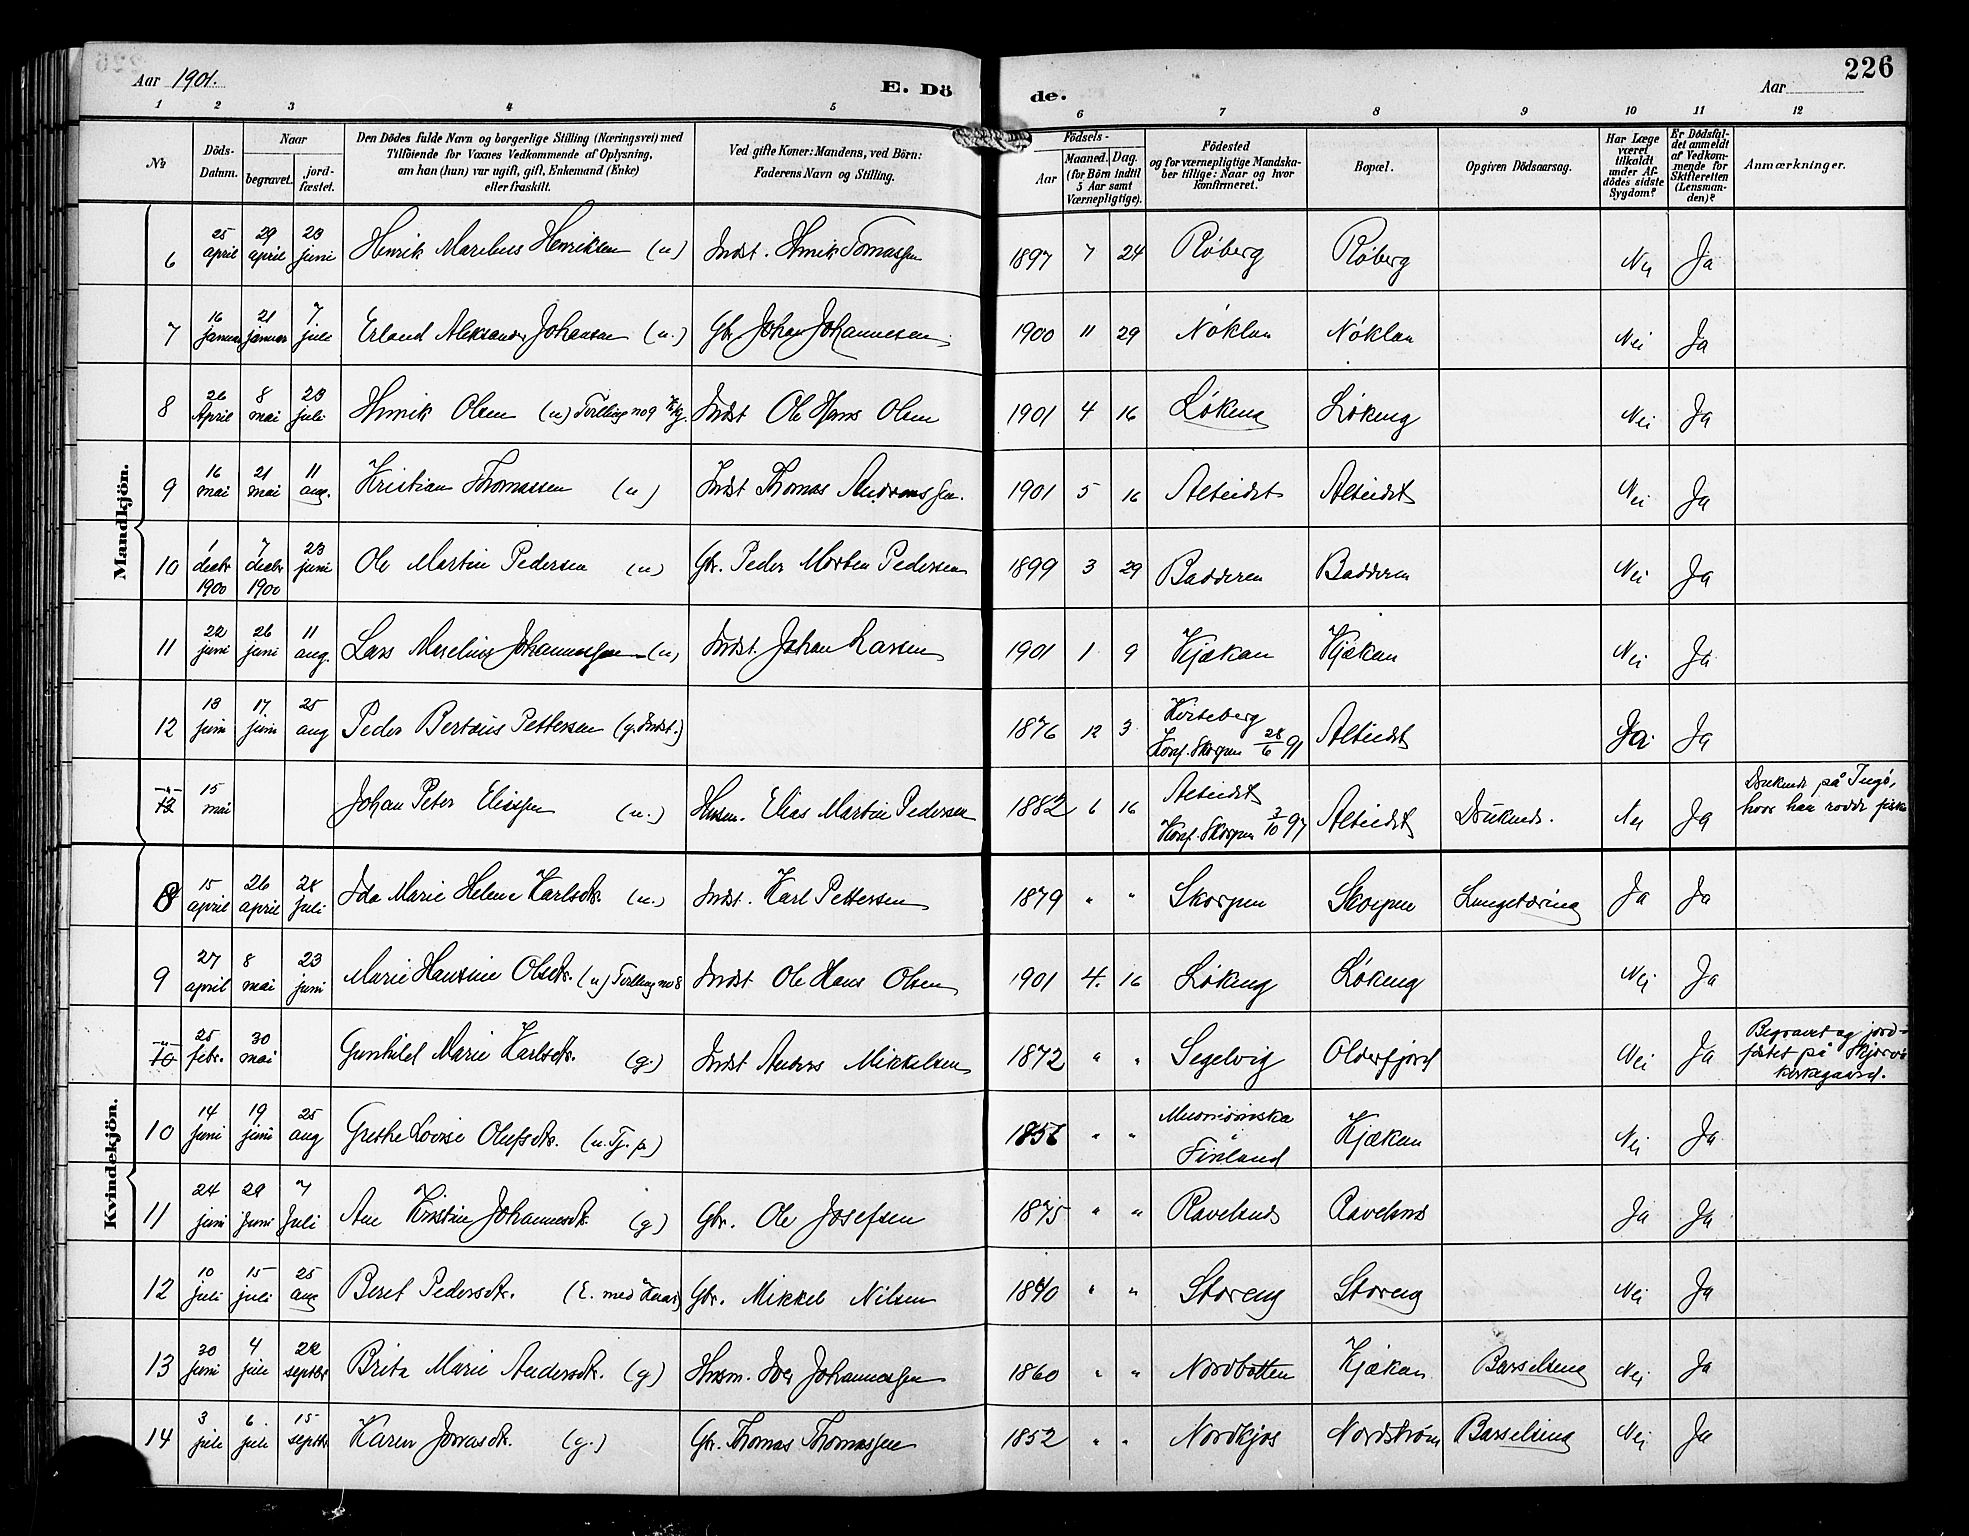 226
Aar 1901.
E. Dö de.
Aar
1 2 3 4 5 6 7 8 9 10 11 12
№
Döds-Datum.
Naar
begravet.
jord-fæstet.
Den Dödes fulde Navn og borgerlige Stilling (Næringsvei) med
Tilföiende for Voxnes Vedkommende af Oplysning,
om han (hun) var ugift, gift, Enkemand (Enke)
eller fraskilt.
Ved gifte Koner: Mandens, ved Börn:
Faderens Navn og Stilling.
Födsels-
Aar
Maaned. Dag.
(for Börn indtil
5 Aar samt
Værnepligtige).
Födested
og for værnepligtige Mandska-
ber tillige: Naar og hvor
konfirmeret.
Bopæl.
Opgiven Dödsaarsag.
Har Læge
været
tilkaldt
under Af-
dödes sidste
Sygdom?
Er Dödsfal-
det anmeldt
af Vedkom-
mende for
Skifteretten
(Lensman-
den)?
Anmærkninger.
Mandkjön.
6 25 april 29 april 23 juni Henrik Marelius Henriksen (u) Indst. Henrik Tomassen 1897 7 24 Røberg Røberg Nei Ja
7 16 januar 21 januar 7 juli Erland Aleksander Johansen (u.) Gbr. Johan Johannesen 1900 11 29 Nöklan Nöklan Nei Ja
8 26 April 8 mai 23 juli Henrik Olsen (u) Tvilling no 9 Indst Ole Hans Olsen 1901 4 16 Løkeng Løkeng Nei Ja
9 16 mai 21 mai 11 aug. Kristian Thomassen (u) Indst Thomas Andreassen. 1901 5 16 Alteidet Alteidet Nei Ja
10 1 decbr 1900 7 decbr 1900 23 juni Ole Martin Pedersen (u) Gbr. Peder Morten Pedersen 1899 3 29 Badderen Badderen Nei Ja
11 22 juni 26 juni 11 aug. Lars Marelius Johannessen (u) Indst. Johan Larsen 1901 1 9 Kjækan Kjækan Nei Ja
12 13 juni 17 juni 25 aug Peder Bertæus Pettersen (g. Indst.) 1876 12 3 Kviteberg Konf. Skorpen 28/6 91 Alteidet Ja Ja
13 15 mai Johan Peter Eliassen (u.) Husm. Elias Martin Pedersen 1882 6 16 Alteidet Konf. Skorpen 3/10 97 Alteidet Druknede. Nei Ja Druknede på Ingö, hvor han rodde fiske
Kvindekjön.
8 15 april 26 april 28 juli Ida Marie Helene Karlsdtr. (u.) Indst. Karl Pettersen 1879 " " Skorpen Skorpen Lungetæring Ja Ja
9 27 april 8 mai 23 juni Marie Hansine Olsdtr. (u) Tvilling no 8 Indst Ole Hans Olsen 1901 4. 16 Løkeng Løkeng Nei Ja
10 25 febr. 30 mai Gunhild Marie Karlsdtr. (g.) Indst Anders Mikkelsen 1872 " " Segelvig Olderfjord Nei Ja Begravet og jord-fæstet på Skjervö kirkegaard.
10 14 juni 19 juni 25 aug Grethe Lovise Olufsdtr. (u. Tj. p.) Finland Kjækan Nei Ja
11 24 juni 29 juni 7 Juli Ane Kristine Johannesdtr. (g) Gbr. Ole Josefsen 1875 " " Ravelsnes Ravelsnes Ja Ja
12 10 juli 15 juli 25 aug Beret Pedersdtr. (E. med Kaar) Gbr. Mikkel Nilsen " " Storeng Storeng Nei Ja
13 30 juni 4 juli 22 septbr Brita Marie Andersdtr. (g) Husm. Iver Johannessen 1860 " " Nordbotten Kjækan Barselseng Nei Ja
14 3 juli 6 juli 15 septbr Karen Jonasdtr. (g.) Gbr. Thomas Thomassen 1852 " " Nordkjos Nordström Barselseng Nei Ja